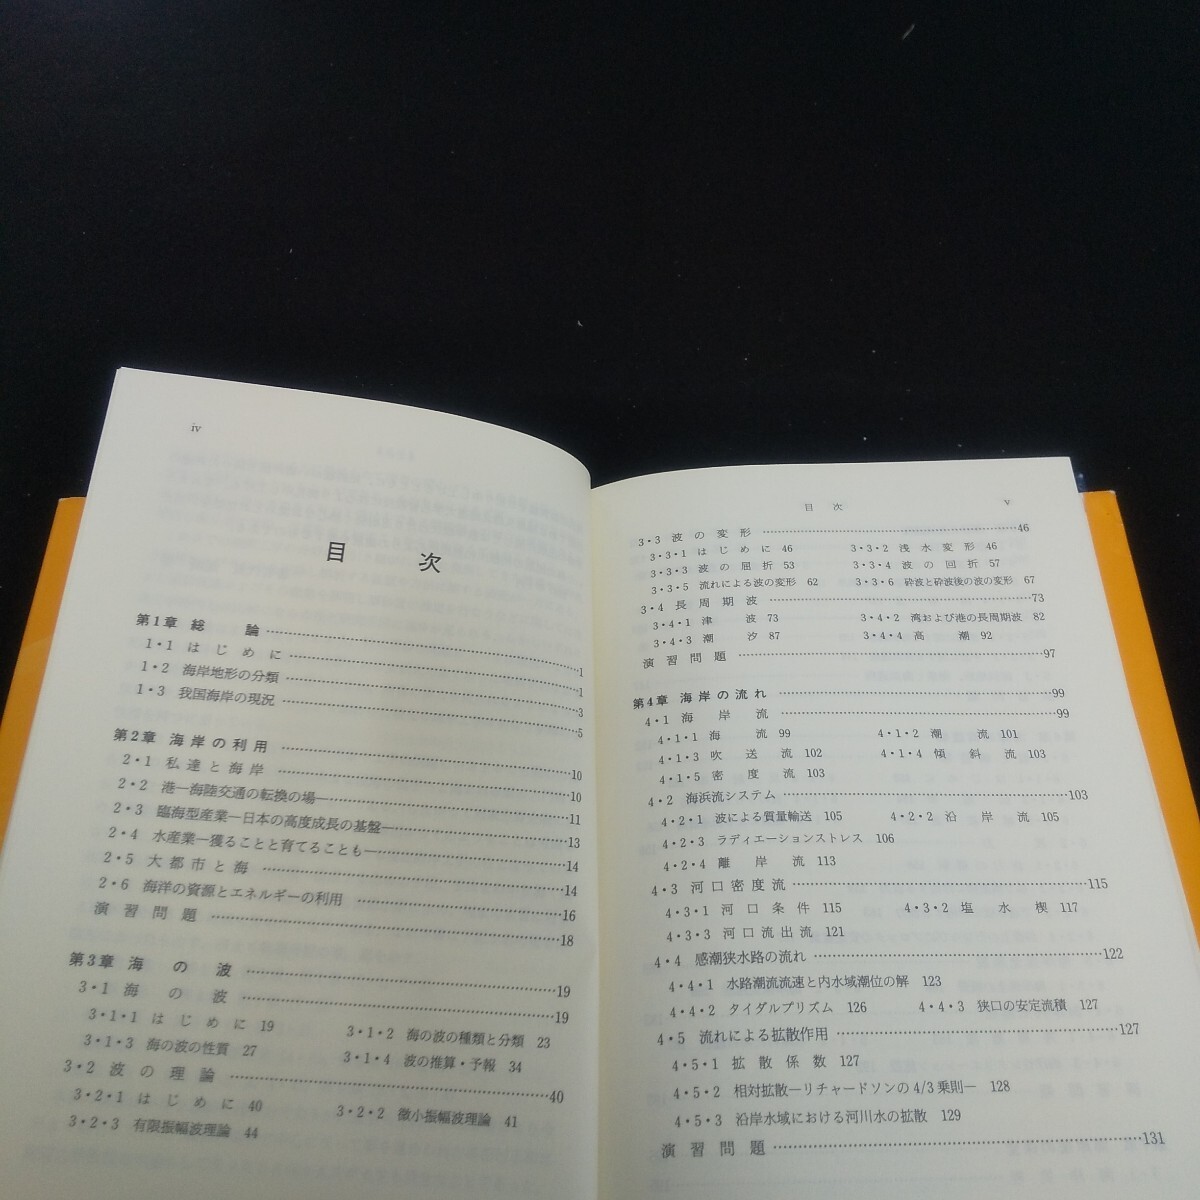 iv
目 次
第1章 総 論 1
1・1 はじめに 1
1・2 海岸地形の分類 3
1・3 我国海岸の現況 5
第2章 海岸の利用 10
2・1 私達と海岸 10
2・2 港―海陸交通の転換の場― 11
2・3 臨海型産業―日本の高度成長の基盤― 13
2・4 水産業―獲ることと育てることも― 14
2・5 大都市と海 14
2・6 海洋の資源とエネルギーの利用 16
演習問題 18
第3章 海の波 19
3・1 海の波 19
3・1・1 はじめに 19 3・1・2 海の波の種類と分類 23
3・1・3 海の波の性質 27 3・1・4 波の推算・予報 34
3・2 波の理論 40
3・2・1 はじめに 40 3・2・2 微小振幅波理論 41
3・2・3 有限振幅波理論 44
目 次 v
3・3 波の変形 46
3・3・1 はじめに 46 3・3・2 浅水変形 46
3・3・3 波の屈折 53 3・3・4 波の回折 57
3・3・5 流れによる波の変形 62 3・3・6 砕波と砕波後の波の変形 67
3・4 長周期波 73
3・4・1 津波 73 3・4・2 湾および港の長周期波 82
3・4・3 潮汐 87 3・4・4 高潮 92
演習問題 97
第4章 海岸の流れ 99
4・1 海岸流 99
4・1・1 海流 99 4・1・2 潮流 101
4・1・3 吹送流 102 4・1・4 傾斜流 103
4・1・5 密度流 103
4・2 海浜流システム 103
4・2・1 波による質量輸送 105 4・2・2 沿岸流 105
4・2・3 ラディエーションストレス 106
4・2・4 離岸流 113
4・3 河口密度流 115
4・3・1 河口条件 115 4・3・2 塩水楔 117
4・3・3 河口流出流 121
4・4 感潮狭水路の流れ 122
4・4・1 水路潮流流速と内水域潮位の解 123
4・4・2 タイダルプリズム 126 4・4・3 狭口の安定流積 127
4・5 流れによる拡散作用 127
4・5・1 拡散係数 127
4・5・2 相対拡散―リチャードソンの4/3乗則― 128
4・5・3 沿岸水域における河川水の拡散 129
演習問題 131